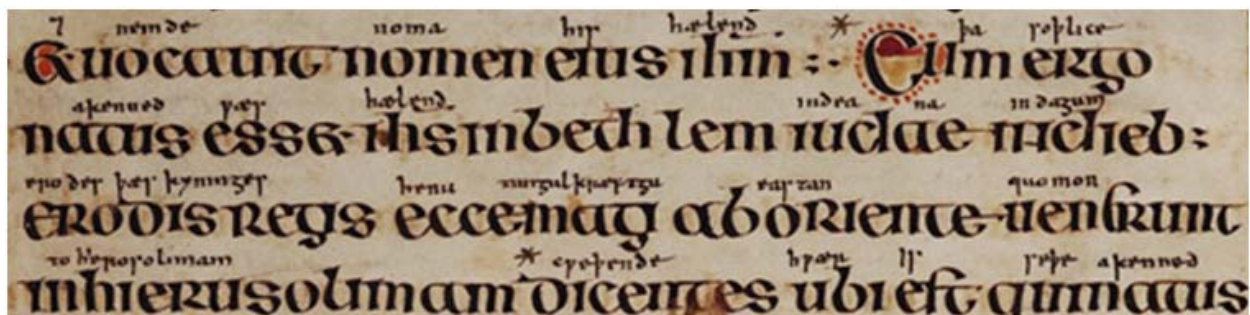 ⁊ nemde noma his hælend * þa soþlice
& uocauit nomen eius ihm :· Cum ergo
akenned ƿæs hælend. iudea na in dagum
natus ess& ihs in beth lem iudae in dieb:
erodes þæs kyninges henu tungulkræftgu eastan quomon
erodis regis ecce magi ab oriente uenerunt
to hierosolimam * cƿeþende hƿær is seþe akenned
in hierusolimam dicentes ubi est qui natus